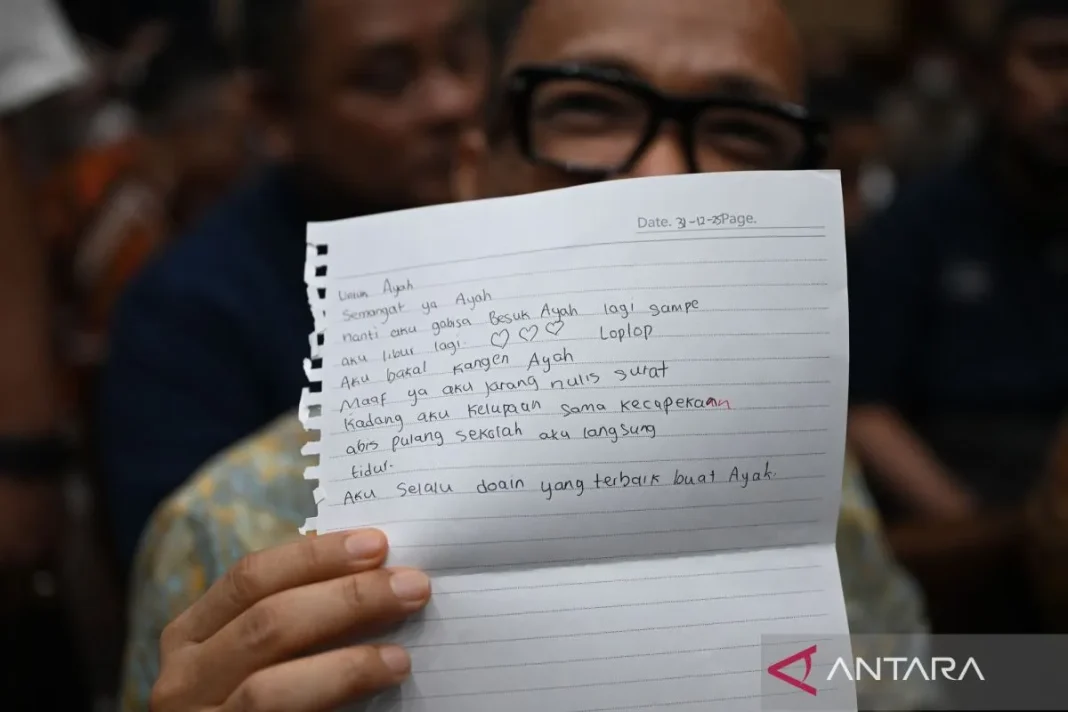 Date. 31-12-25 Page.
Untuk Ayah
Semangat ya Ayah
nanti aku gabisa Besuk Ayah lagi sampe
aku libur lagi. ♡♡♡ Loplop
Aku bakal kangen Ayah
Maaf ya aku jarang nulis surat
Kadang aku kelupaan sama kecapekaann
abis pulang sekolah aku langsung
tidur.
Aku selalu doain yang terbaik buat Ayah.
ANTARA